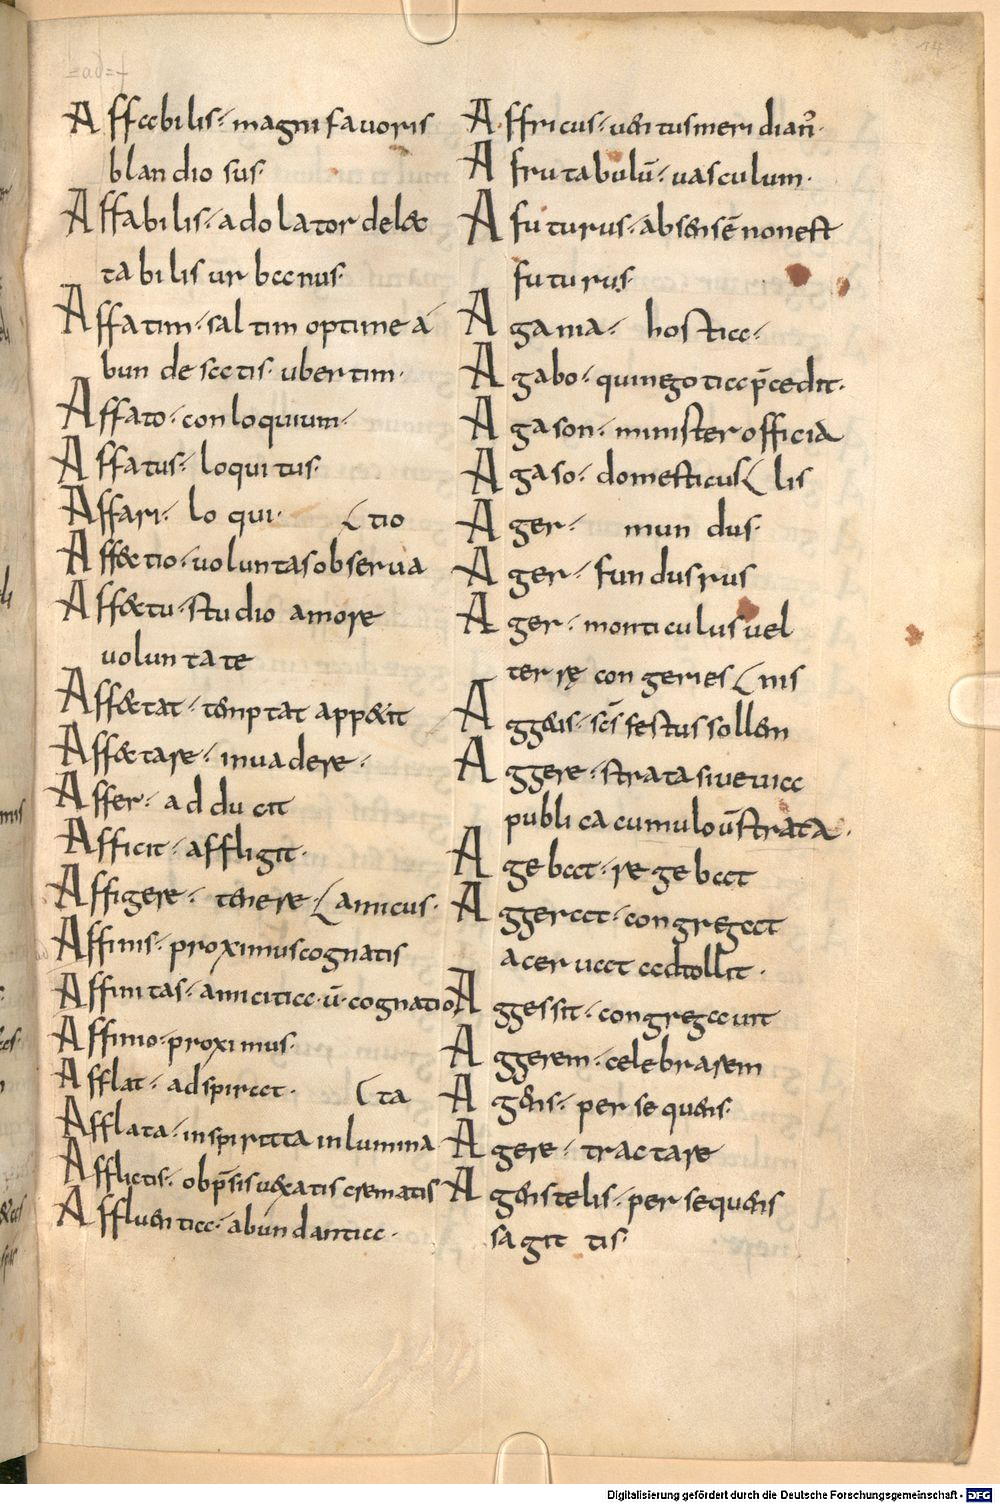 =ad=f
Affabilis · magni favoris
blan dio sus·
Affabilis · adolator delec
ta bilis urbanus·
Affatim · saltim optime a
bun de satis · ubertim·
Affato · conloquium·
Affatus · loquitus·
Affari · loqui·
Affectio · voluntas observa
(tio
Affectu · studio amore
voluntate
Affectat · temptat appetit
Affectare · invadere·
Affer · ad ducit
Afficit · affligit·
Affigere · tenere
Affinis · proximus cognatis
(amicus·
Affinitas · amicitia · ū · cognatio
Affinio · proximus·
Afflat · adspirat·
Afflata · inspirata inlumina
(ta
Afflictis · obp̄sis vexatis crematis
Affluentia · abundantia·
14
Affricus · ventus meridian̄·
Afrutabulū · vasculum·
Afuturus · absens ē non est
futurus·
Agania · hostia·
Agabo · qui negotia p̄cedit·
Agason · minister officia
(lis
Agaso · domesticus
Ager · mundus·
Ager · fundus rus
Ager · monticulus vel
terrę congeries
Aggens · sc̄s festus sollem
(nis
Aggere · strata sive via
publica cumulo ū strata·
Agebat · regebat
Aggerat · congregat
acervat adtollit·
Aggessit · congregavit
Aggerem · celebrarem
Agens · persequens·
Agere · tractare
Agens telis · persequens
sagittis·
Digitalisierung gefördert durch die Deutsche Forschungsgemeinschaft - DFG